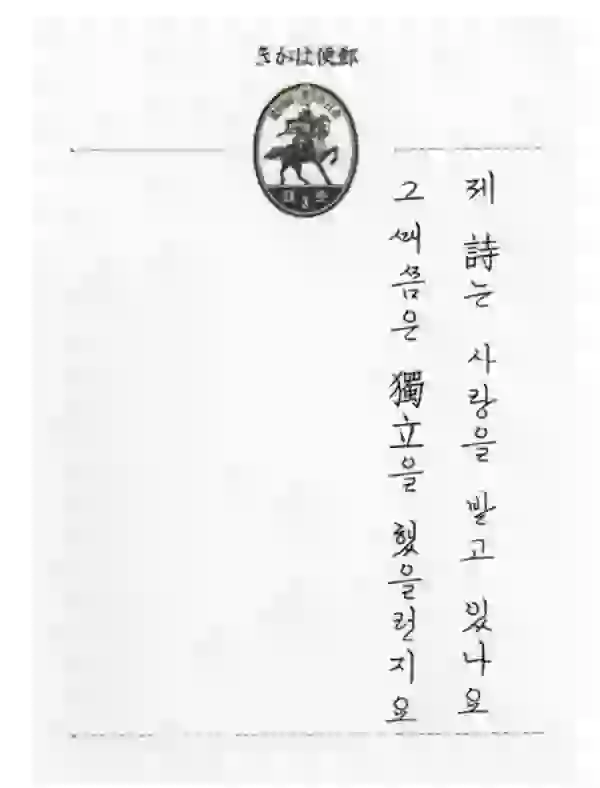 郵便はがき
제 詩는 사랑을 받고 있나요
그 때쯤은 獨立을 했을런지요